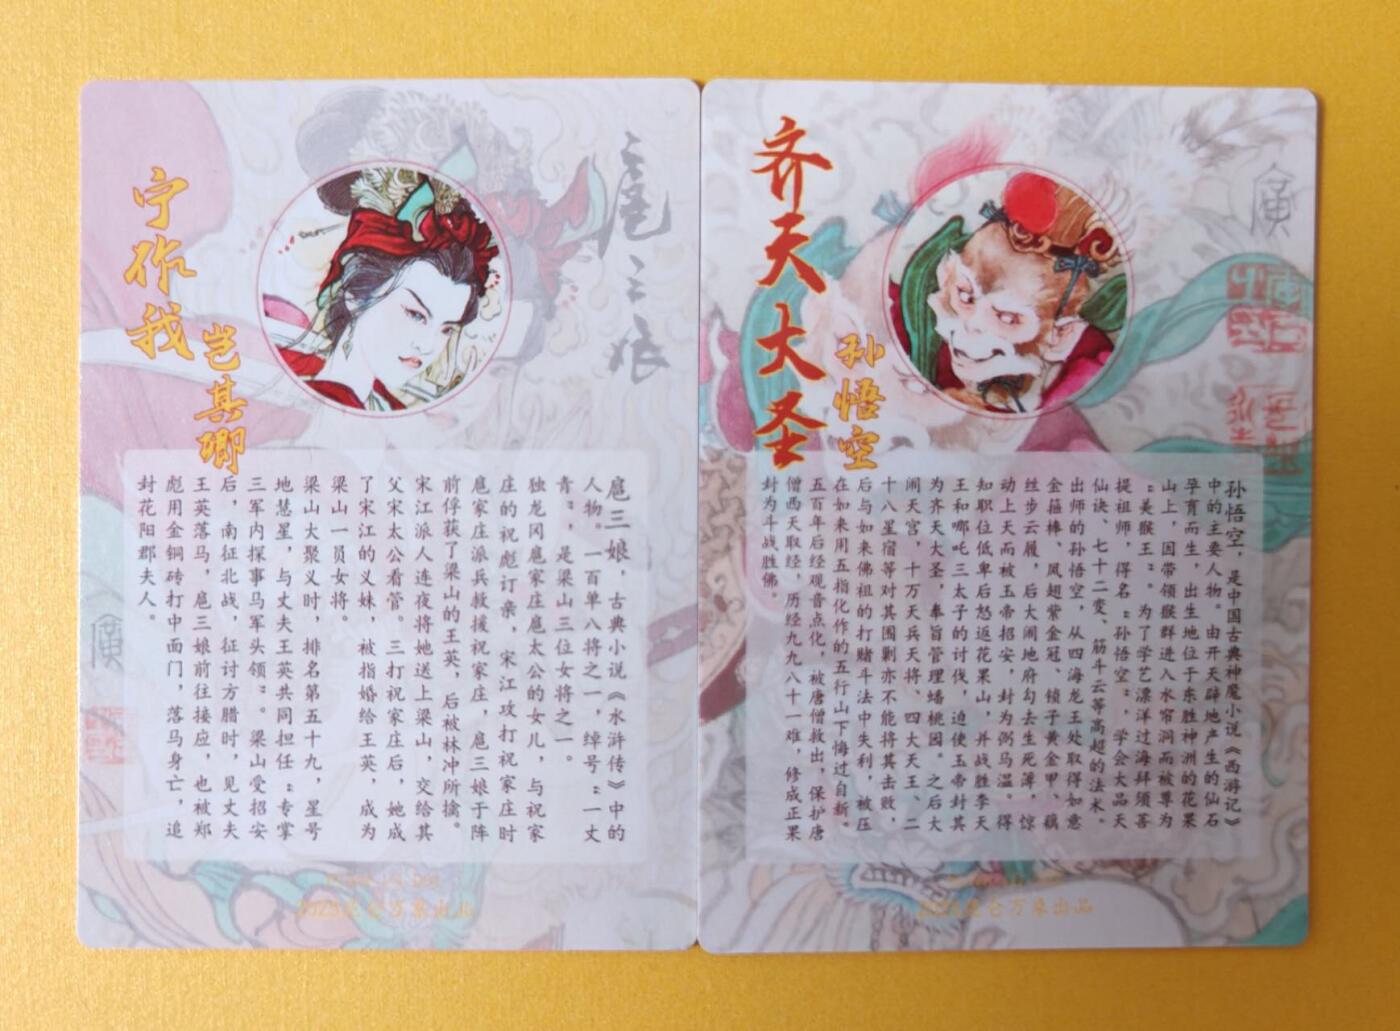 宁作我
岂其卿
扈三娘
扈三娘，古典小说《水浒传》中的
人物。一百单八将之一，绰号“一丈
青”，是梁山三位女将之一。
独龙冈扈家庄扈太公的女儿，与祝家
庄的祝彪订亲，宋江攻打祝家庄时
扈家庄派兵救援祝家庄，扈三娘于阵
前俘获了梁山的王英，后被林冲所擒。
宋江派人连夜将她送上梁山，交给其
父宋太公看管。三打祝家庄后，她成
了宋江的义妹，被指婚给王英，成为
梁山一员女将。
梁山大聚义时，排名第五十九，星号
地慧星，与丈夫王英共同担任“专掌
三军内探事马军头领”。梁山受招安
后，南征北战，征讨方腊时，见丈夫
王英落马，扈三娘前往接应，也被郑
彪用金铜砖打中面门，落马身亡，追
封花阳郡夫人。
昆仑万象出品
齐天大圣
孙悟空
孙悟空，是中国古典神魔小说《西游记》
中的主要人物。由开天辟地产生的仙石
孕育而生，出生地位于东胜神洲的花果
山上，因带领猴群进入水帘洞而被尊为
“美猴王”。为了学艺漂洋过海拜须菩
提祖师，得名“孙悟空”，学会大品天
仙诀、七十二变、筋斗云等高超的法术。
出师的孙悟空，从四海龙王处取得如意
金箍棒、凤翅紫金冠、锁子黄金甲、藕
丝步云履，后大闹地府勾去生死簿，惊
动上天而被玉帝招安，封为弼马温。得
知职位低卑后怒返花果山，并战胜李天
王和哪吒三太子的讨伐，迫使玉帝封其
为齐天大圣，奉旨管理蟠桃园。之后大
闹天宫，十万天兵天将、四大天王、二
十八星宿等对其围剿亦不能将其击败，
后与如来佛祖的打赌斗法中失利，被压
在如来用五指化作的五行山下悔过自新。
五百年后经观音点化，被唐僧救出，保护唐
僧西天取经，历经九九八十一难，修成正果
封为斗战胜佛。
昆仑万象出品